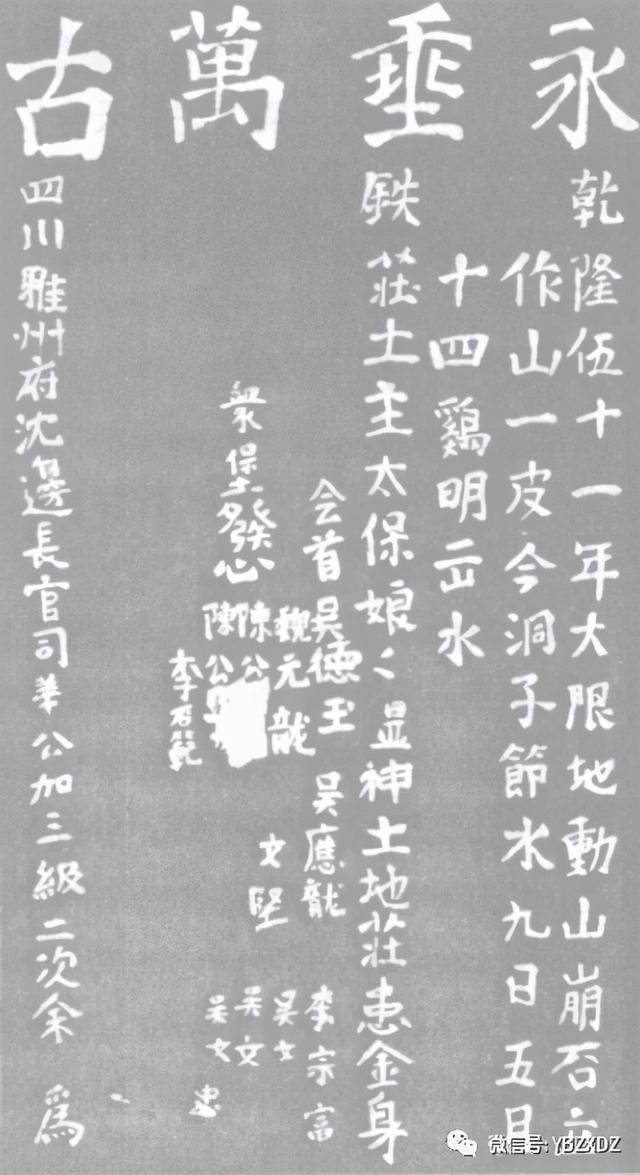 永垂萬古
乾隆伍十一年大限地動山崩石
作山一皮今洞子節水九日五月
十四鷄明水
鉄莊土主太保娘〻显神土地莊金身
会首吳德玉 吳應龍 李宗富
魏元龍 文堅 吳文
陳公 吳文
衆堡發心 陳公 吳文忠
李
四川雅州府沈邊長官司華公加三級二次余 爲
微信号: YBZXDZ